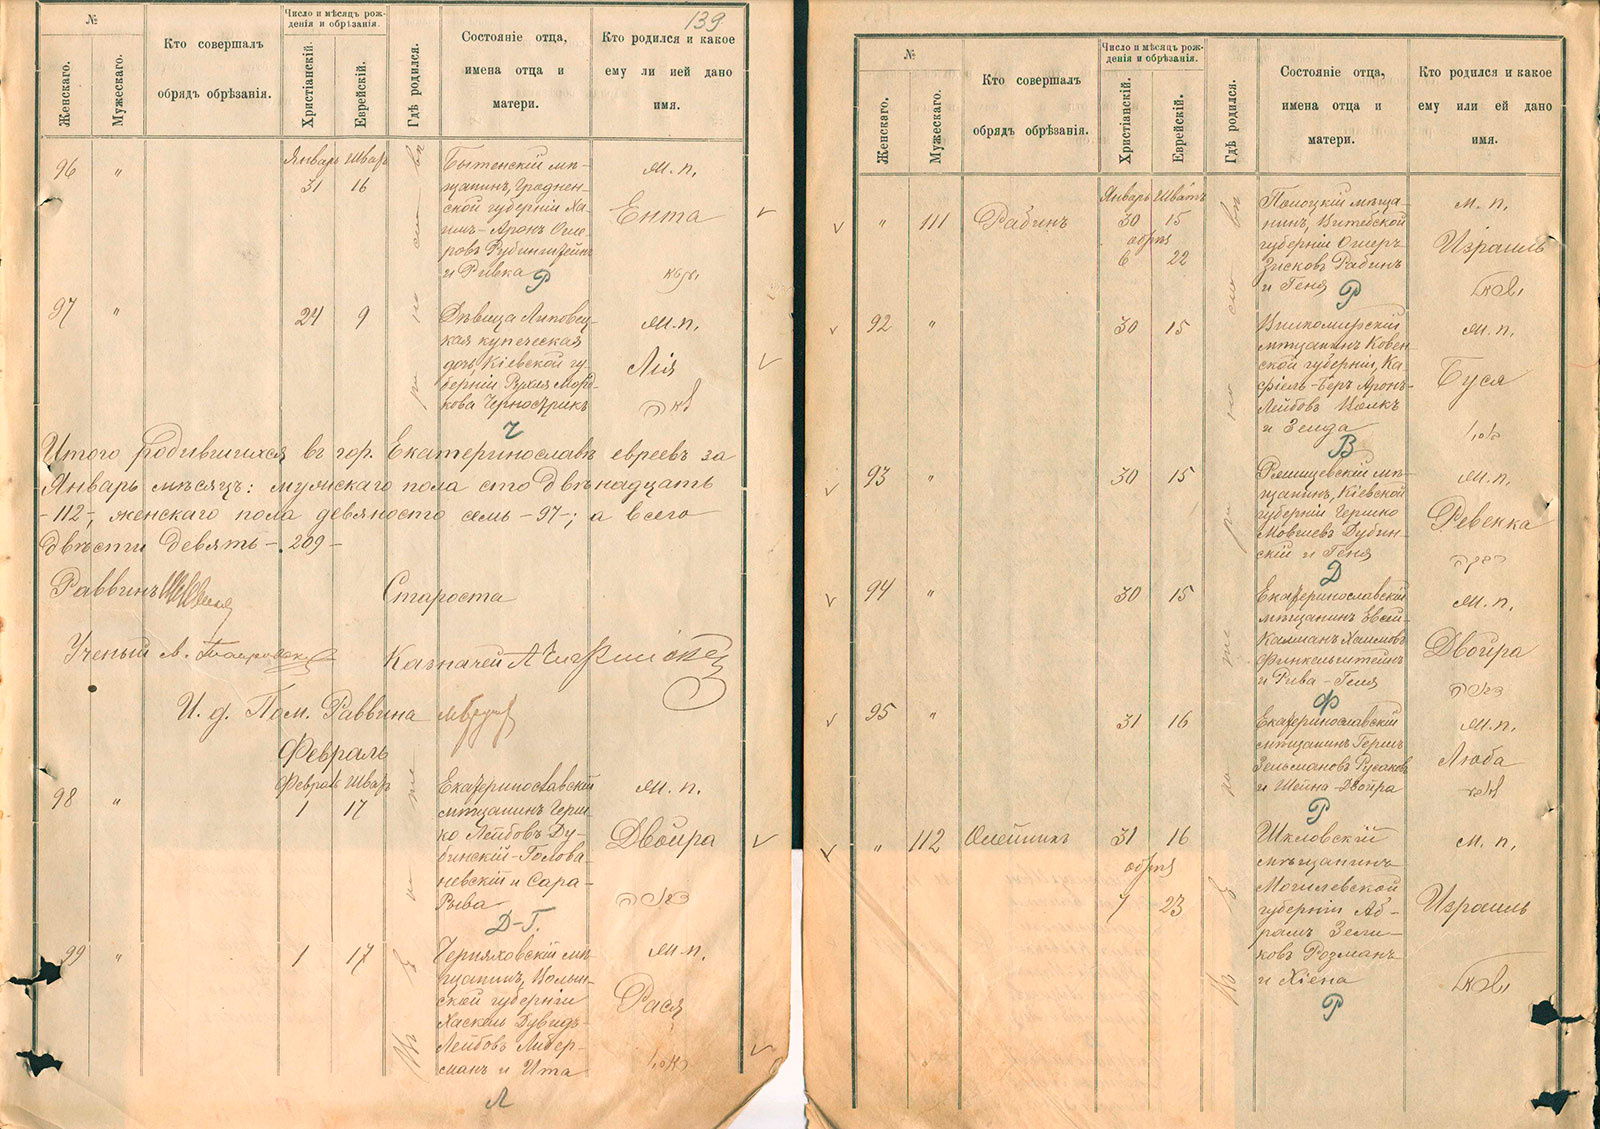 139
№
Женскаго.
Мужескаго.
Кто совершалъ
обрядъ обрѣзанія.
Число и мѣсяцъ рож-
денія и обрѣзанія.
Христіанскій.
Еврейскій.
Гдѣ родился.
Состояніе отца,
имена отца и
матери.
Кто родился и какое
ему ли ией дано
имя.
96 "
Январь Шват
31 16
Бытенскій мѣ-
щанинъ, Гроднен-
ской губерніи Ха-
имъ-Аронъ Оше-
ровъ Рубинштейнъ
и Ривка
Р
м. п.
Ента
97 "
24 9
Дѣвица Липовец-
кая купеческая
дочь, Кіевской гу-
берніи Рухля Морд-
кова
Ч
м. п.
Лія
לאה
Итого родившихся въ гор. Екатеринославѣ евреевъ за
Январь мѣсяцъ: мужскаго пола сто двѣнадцать
-112-, женскаго пола девяносто семь -97-; а всего
двѣсти девять -209-
Раввинъ
Староста
Ученый
Казначей
И. д. Пом. Раввина
Февраль
98 "
Февраль Шват
1 17
Екатеринославскій
мѣщанинъ Герш-
ко Лейбовъ Ду-
бинскій-Голова-
невскій и Сара-
Рыва
Д-Г.
м. п.
Двойра
דבורה
99 "
1 17
Черняховскій мѣ-
щанинъ, Волын-
ской губерніи
Хаскель Дувидъ-
Лейбовъ Либер-
манъ и Ита
Л
м. п.
Рася
№
Женскаго.
Мужескаго.
Кто совершалъ
обрядъ обрѣзанія.
Число и мѣсяцъ рож-
денія и обрѣзанія.
Христіанскій.
Еврейскій.
Гдѣ родился.
Состояніе отца,
имена отца и
матери.
Кто родился и какое
ему или ей дано
имя.
" 111 Рабинъ
Январь Шватъ
30 15
обрѣз
6 22
Полоцкій мѣща-
нинъ, Витебской
губерніи Ошеръ
Зисковъ Рабинъ
и Геня
Р
м. п.
Израиль
92 "
30 15
Вилкомирскій
мѣщанинъ Ковен-
ской губерніи, Ка-
фіель-Беръ Аронъ-
Лейбовъ Волкъ
и Зелда
В
м. п.
Буся
93 "
30 15
мѣ-
щанинъ, Кіевской
губерніи Гершко
Мовшевъ Дубин-
скій и Геня
Д
м. п.
Ревекка
רבקה
94 "
30 15
Екатеринославскій
мѣщанинъ Евсей-
Калманъ Хаимовъ
Финкельштейнъ
и Рива-Геня
Ф
м. п.
Двойра
דבורה
95 "
31 16
Екатеринославскій
мѣщанинъ Гершъ
Зельмановъ Русаковъ
и Шейна-Двойра
Р
м. п.
Люба
" 112 Олейникъ
31 16
обрѣз
7 23
Шкловскій
мѣщанинъ
Могилевской
губерніи Аб-
рамъ Зели-
ковъ Розманъ
и Хіена
Р
м. п.
Израиль